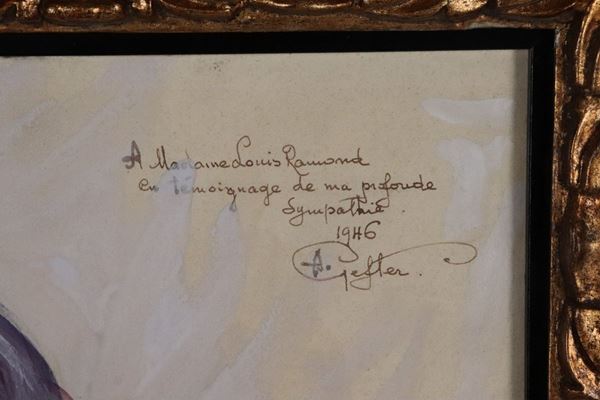 A Madame Louis Ramond
en témoignage de ma profonde
Sympathie.
1946
A. Gefter.